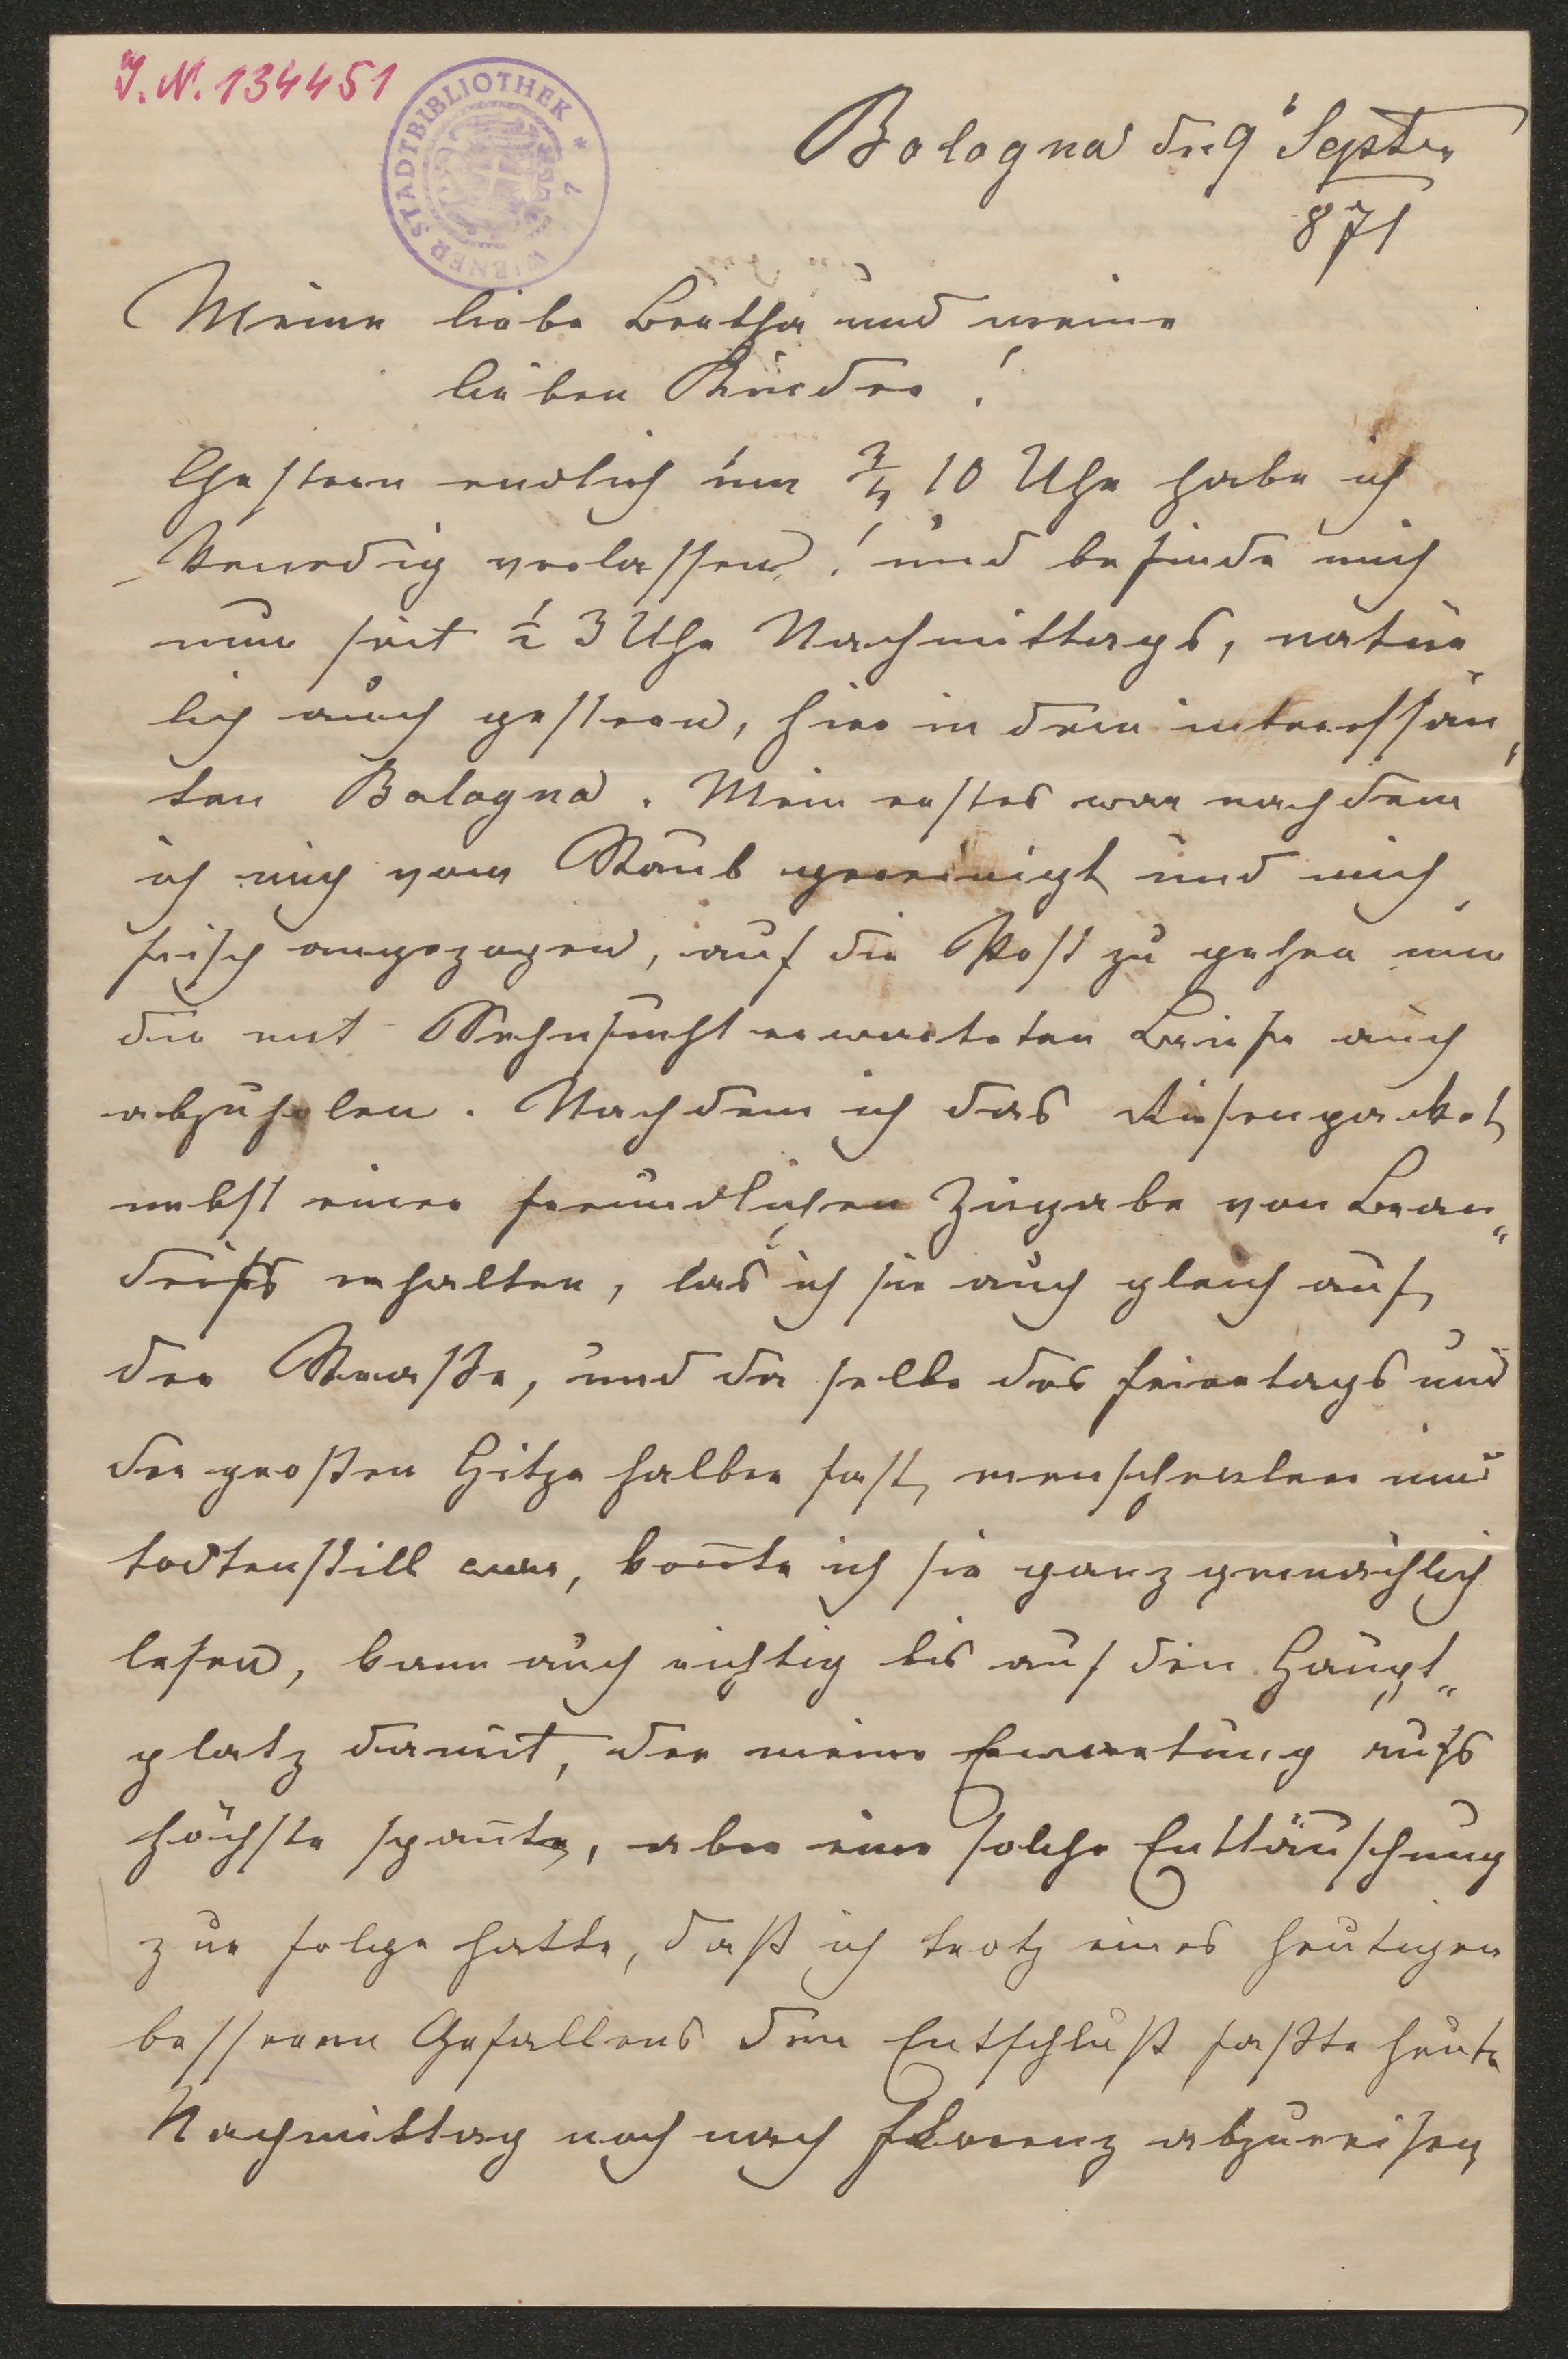 J. N. 134451
WIENER STADTBIBLIOTHEK * 7
Bologna den 9t Septem
871
Meine liebe Bertha und meine
lieben Kinder!
Gestern endlich um 3/4 10 Uhr habe ich
Venedig verlassen! und befinde mich
nun seit 1/2 3 Uhr Nachmittags, natür„
lich auch gestern, hier in dem interessan„
ten Bologna. Mein erstes war nachdem
ich mich vom Staub gereinigt und mich
frisch angezogen, auf die Post zu gehen um
die mit Sehnsucht erwarteten Briefe auch
abzuholen. Nachdem ich das Riesenpacket
nebst einer freundlichen Zugabe von Bran„
deiss erhalten, las ich sie auch gleich auf
der Straße, und da selbe des Feiertags und
der großen Hitze halber fast menschenleer und
todtenstill war, kon̄te ich sie ganz gemächlich
lesen, kam auch richtig bis auf den Haupt„
platz damit, der meine Erwartung aufs
höchste span̄te, aber eine solche Enttäuschung
zur Folge hatte, daß ich trotz eines heutigen
besseren Gefallens den Entschluß faßte heute
Nachmittag noch nach Florenz abzureisen